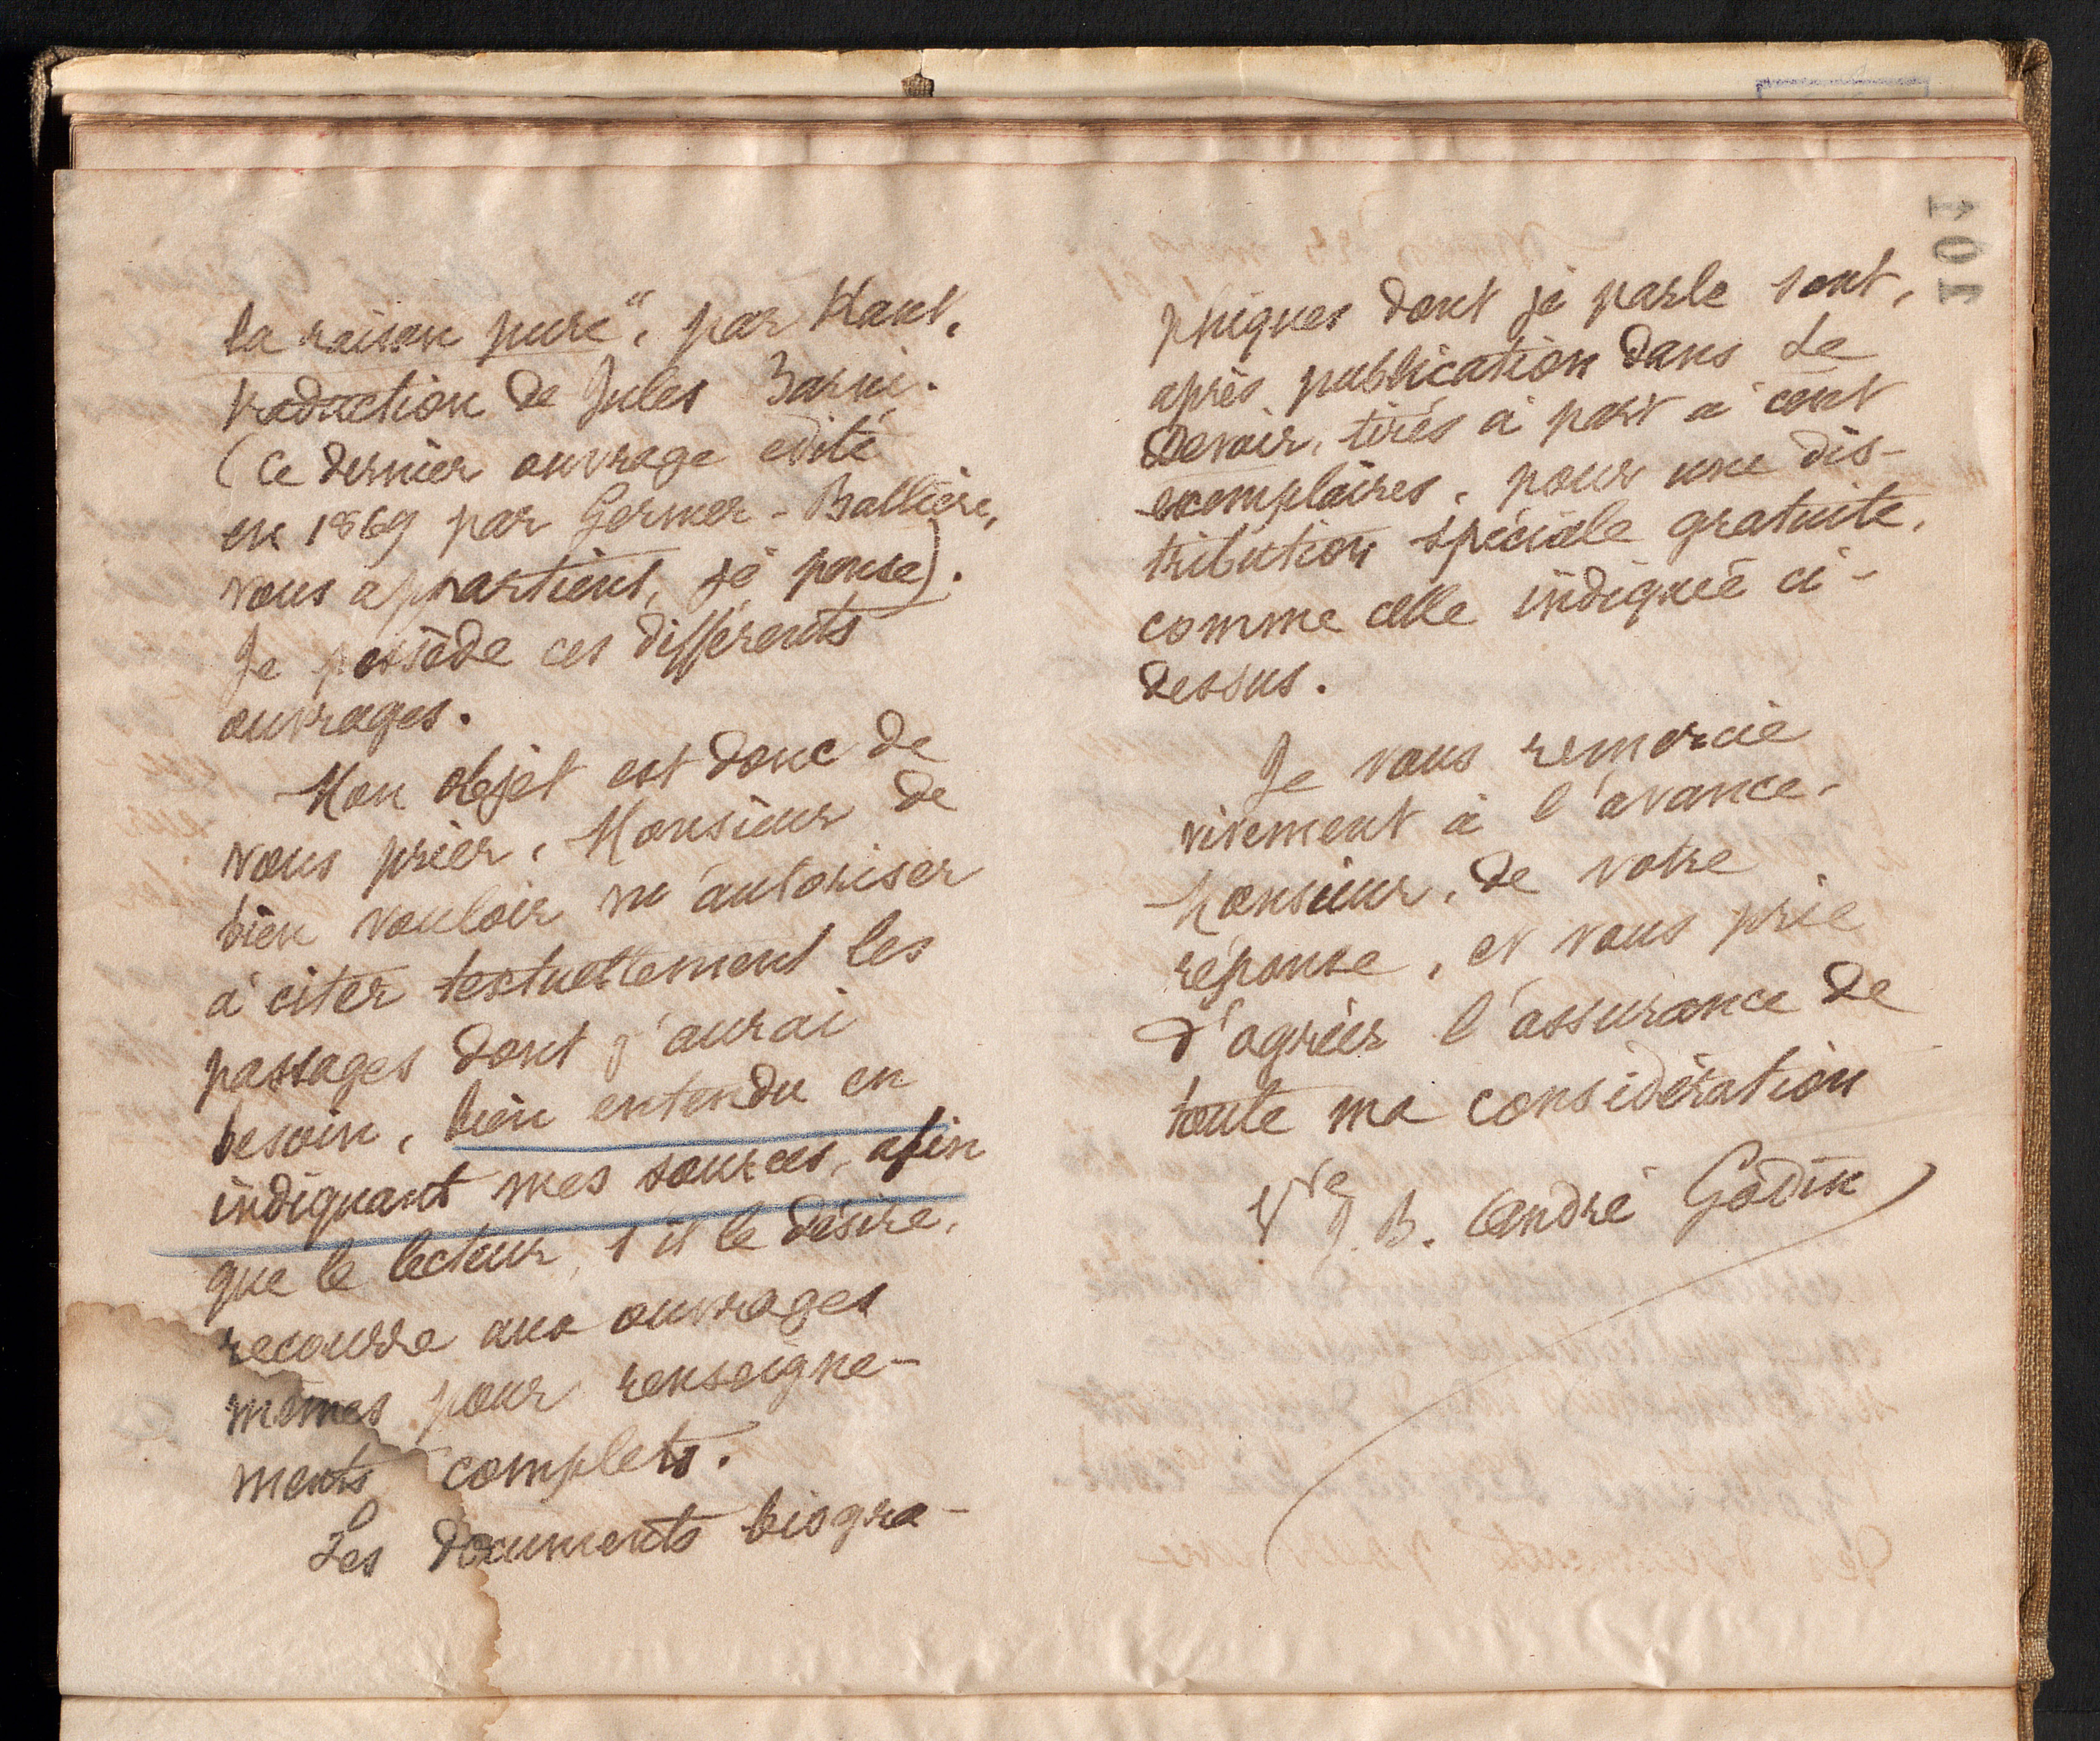 la raison pure", par Kant,
traduction de Jules Barni.
(Ce dernier ouvrage édité
en 1869 par Germer-Ballière,
vous appartient, je pense).
Je possède ces différents
ouvrages.
Mon objet est donc de
vous prier, Monsieur de
bien vouloir m'autoriser
à citer textuellement les
passages dont j'aurai
besoin, bien entendu en
indiquant mes sources, afin
que le lecteur, s'il le désire,
recourre aux ouvrages
mêmes pour renseigne-
ments complets.
Les documents biogra-
phiques dont je parle sont,
après publication dans Le
Devoir, tirés à part à cent
exemplaires, pour une dis-
tribution spéciale gratuite,
comme celle indiquée ci-
dessus.
Je vous remercie
vivement à l'avance,
Monsieur, de votre
réponse, et vous prie
d'agréer l'assurance de
toute ma considération
Vve J. B. André Godin
101